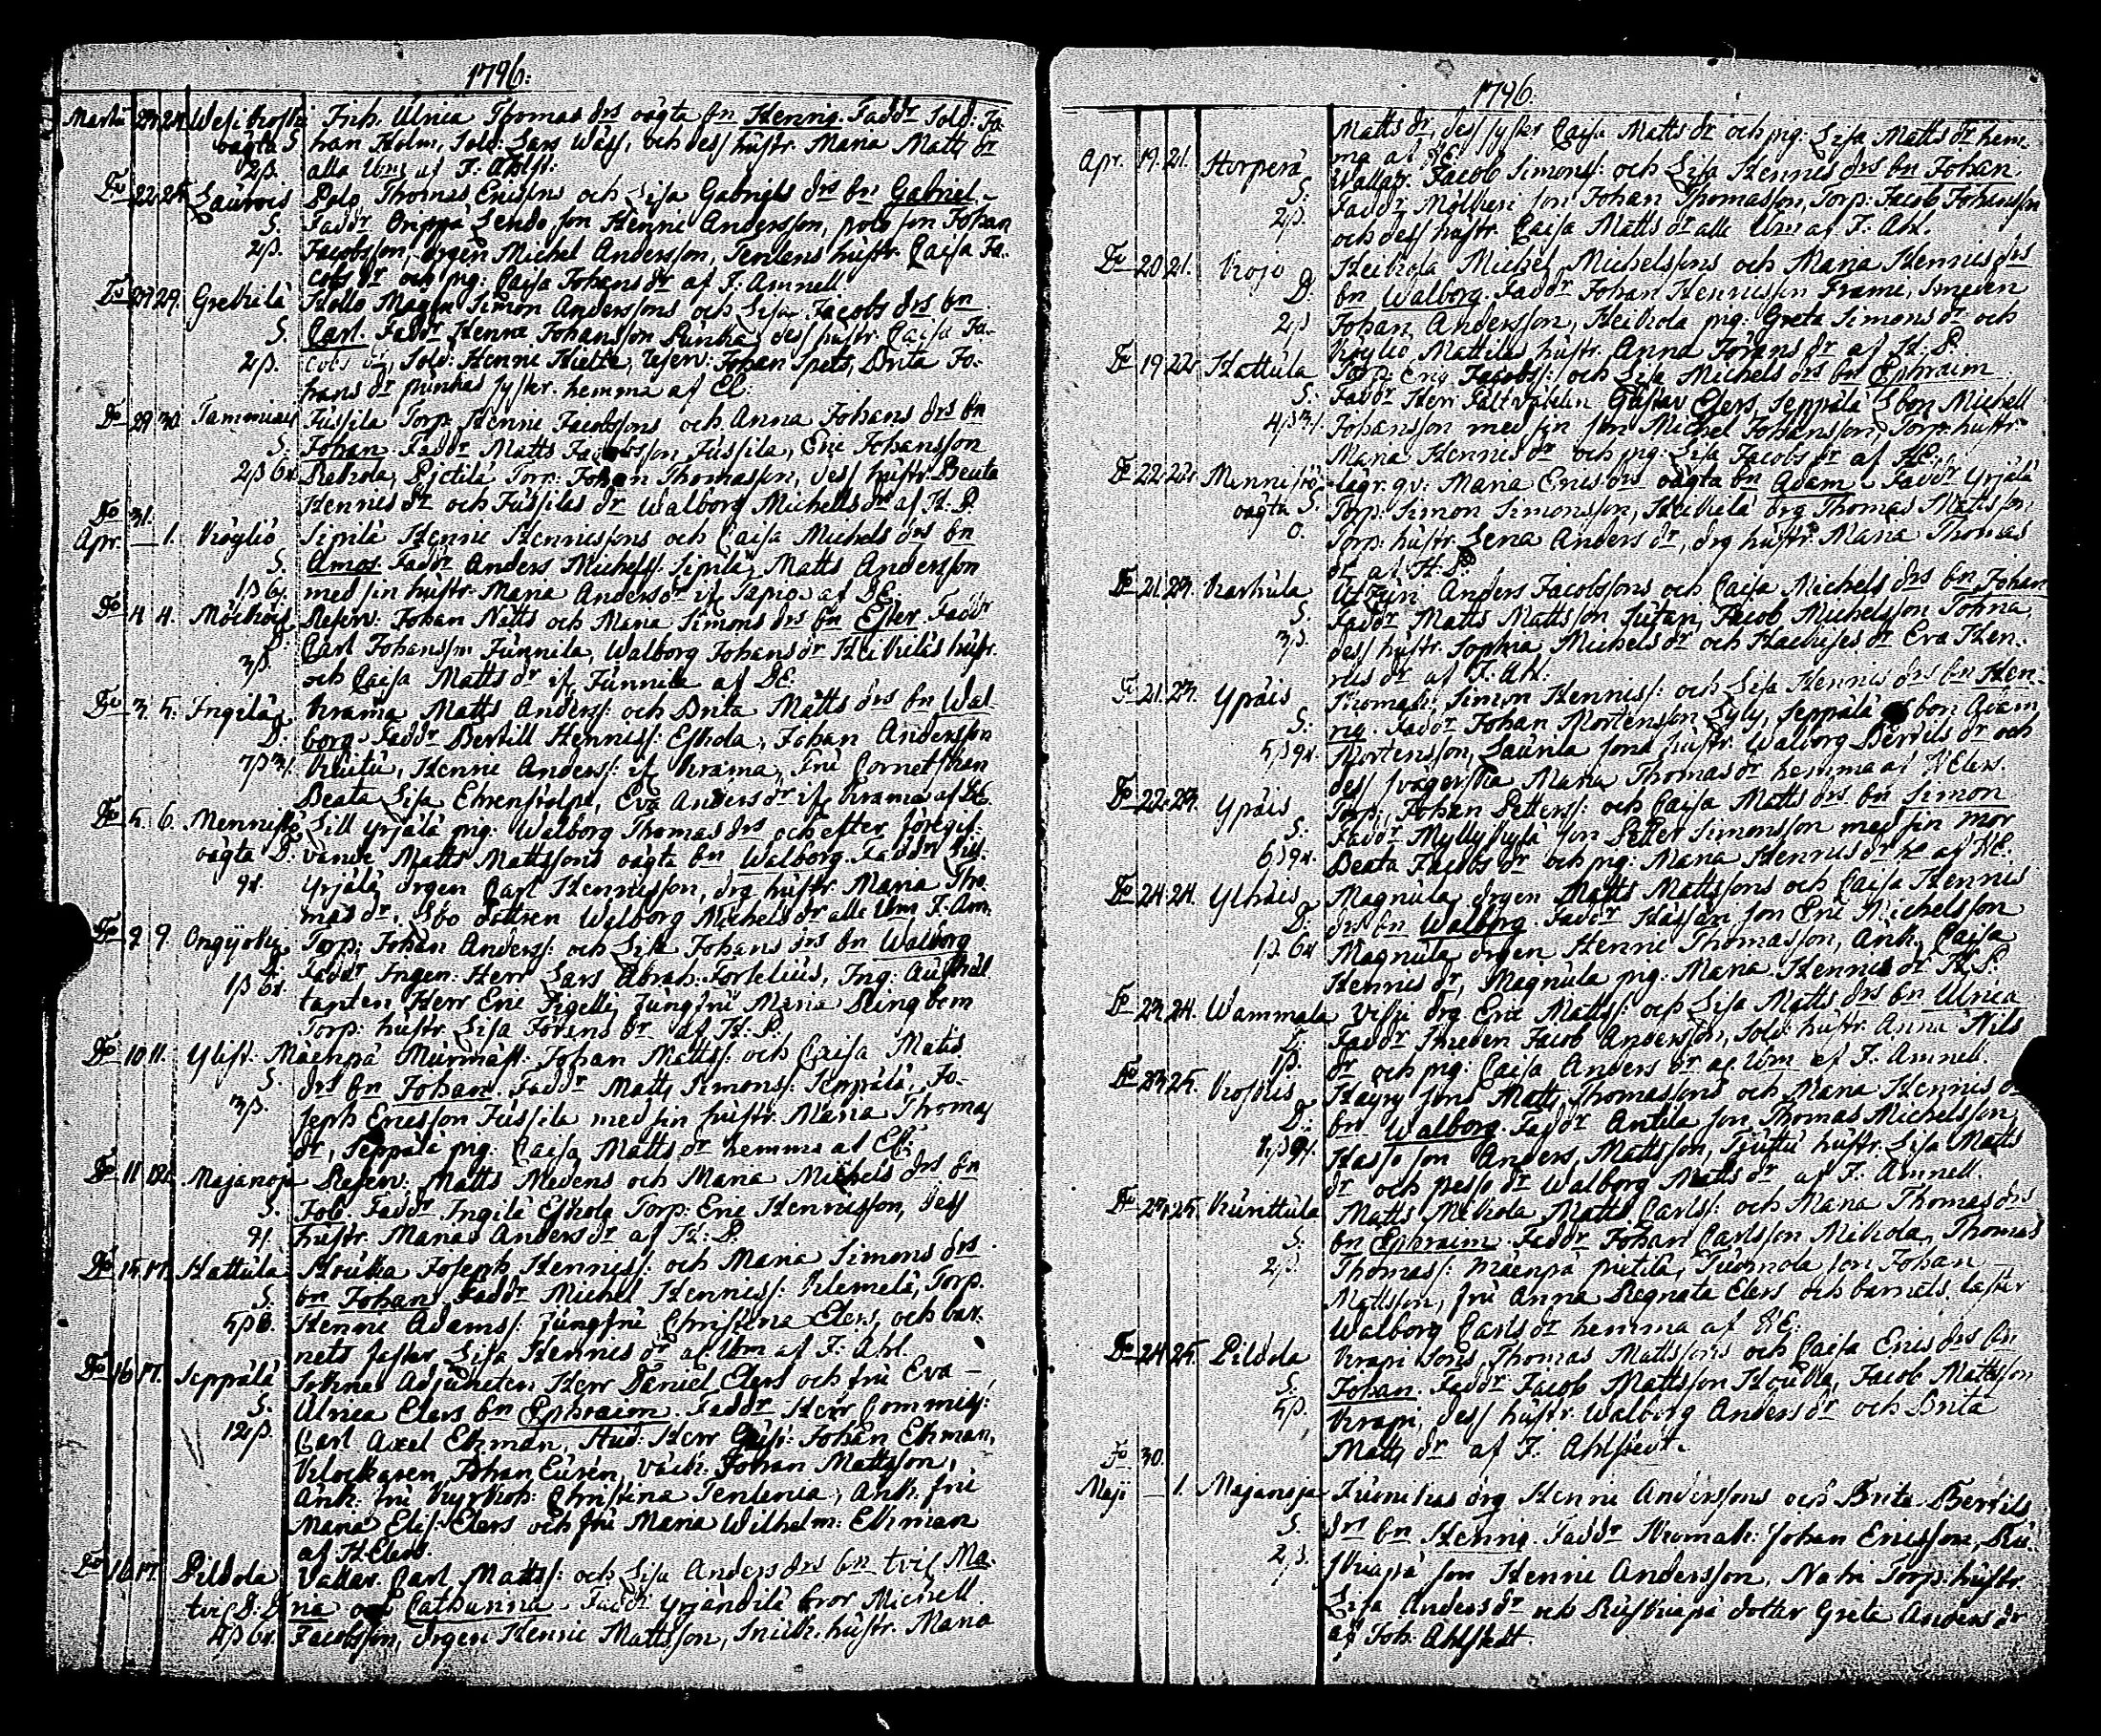 1796.
Martii 23. 24. Wesikoski Inh. Ulrica Thomas drs oägta bn Henric. Fadd. Sold: Jo-
oägta S. han Holm, Sold: Lars Wass, och dess hustr. Maria Matts dr
2ß. alla Ums af J: Ahlst:
Do 22. 24. Laurois Polo Thomas Ericsons och Lisa Gabriels drs bn Gabriel.
S. Faddr Orippä Lendo son Henric Andersson, polo son Johan
2ß. Jacobsson, drgen Michel Andersson, Tenlens hustr. Caisa Ja-
cobs dr och pig: Caisa Johans dr af J: Amnell
Do 27 29. Grekilä Kollo Simon Anderssons och Lisa Jacobs drs bn
S. Carl. Faddr Henric Johansson Punka, dess hustr. Caisa Ja-
2ß. cobs dr, Sold: Henric Hiette, reserv: Johan Spets, Brita Jo-
hans dr punkas syster. hemma af EE.
Do 29 30. Jussila Torp. Henric Jacobssons och Anna Johans drs bn
S. Johan. Faddr Matts Jacobsson Jussila, Eric Johansson
2ß 6r. Rekola, Pietilä Torp: Johan Thomasson, dess hustr. Beata
Hennes dr och Jussilas dr Walborg Michels dr af H: P.
Do 31.
Apr. — 1. Kögliö Sipilä Henric Henricssons och Caisa Michels drs bn
S. Amos. Faddr Anders Michelss: Sipilä, Matts Andersson
1ß 6r. med sin hustr. Maria Anders dr if Tapio af DE.
Do 4. 4. Reserv: Johan Nätts och Maria Simons drs bn Ester Faddr
D.
3ß. Carl Johansson Junnila, Walborg Johans dr Heikkiläs hustr.
och Caisa Matts dr if Junnila af DE:
Do 3. 5. Ingilä Krama Matts Anderss: och Brita Matts drs bn Wal-
D. borg. Faddr Bertill Henriss: Eskola, Johan Andersson
Kuitu, Henric Anderss: if Krama, Fru Cornetskan
Beata Lisa Ehrenstolpe, Eva Anders dr if Krama af DE.
Do 5. 6. Mennistö Sill Yrjälä pig: Walborg Thomas drs och efter föregif-
oägta D. vande Matts Mattssons oägta bn Walborg. Faddr Sill-
9r. Yrjälä drgen Carl Henricsson, drg hustr. Maria Tho-
mas dr, Sbo dottren Walborg Michels dr alle Um J: Am.
Do 9. 9. Torp: Johan Anderss: och Lisa Johans drs bn Walborg
D. Faddr Ingen: Herr Lars Abrah: Forselius, Ing: Auskul-
1ß 6r. tanten Herr Eric Jungfru Maria Ringbom
Torp: hustr. Lisa Jörens dr af H: P.
Do 10 11. Ylist. Mäenpä Murmäst. Johan Mattss: och Caisa Matts
S. drs bn Johan. Faddr Matts Simonss: Seppälä, Jo-
3ß. seph Ericsson Jussila med sin hustr. Maria Thomas
dr, Seppälä pig: Caisa Matts dr hemma af EE:
Do 11 12. Majanoja Reserv: Matts Nevens och Maria Michels drs bn
S. Job. Faddr Ingilä Eskola Torp: Eric Henricsson, dess
9r. hustr. Maria Anders dr af H: P.
Do 15. 17. Hattula Kouka Joseph Henriss: och Maria Simons drs
S. bn Johan. Faddr Michel Henriss: Klemelä, Torp.
Henric Adamss: Jungfru Christina Elers, och bar-
nets faster Lisa Henrics dr af Um af J: Ahl.
Do 16 17. Seppälä Soknes Adjuncten Herr Daniel Elers och fru Eva —
S. Ulrica Elers bn Ephraim. Faddr Herr Commiss:
12ß. Carl Axel Ekman, Stud: Herr Johan Ekman,
Klockaren Johan Euren, Johan Mattsson,
Änk. fru Kyrkoh: Christina Tenlenia, Änk. fru
Maria Elis: Elers och fru Maria Wilhelm: Ekman
af H. Elers.
Do 16 17. Pildola Vallar. Carl Mattss: och Lisa Anders drs bn tvil Ma-
tvil D. D. ria och Catharina. Faddr Yrjändilä bror Michell
4ß 6r. Jacobsson, drgen Henric Mattsson, Snick. hustr. Maria
1796.
Matts dr, dess syster Caisa Matts dr och pig: Lisa Matts dr hem-
ma af HE.
Apr. 19. 21. Korpera Wallar. Jacob Simonss: och Lisa Hennes drs bn Johan
S. Faddr Möllieri son Johan Thomasson, Torp: Jacob Johansson
2ß. och dess hustr. Caisa Matts dr alle Um af J: Ahl.
Do 20 21. Kojo Heikola Michel Michelssons och Maria Hennis drs
D. bn Walborg. Faddr Johan Henricsson Frami, Smeden
2ß Johan Andersson, Heikola pig: Greta Simons dr och
Köyliö Mattilas hustr. Anna Jörans dr af H: P.
Do 19 22 Hattula Torp: Eric Jacobss: och Lisa Michels drs bn Ephraim
S. Faddr Herr Fältväbeln Gustav Elers, Seppälä Sbon Michell
Johansson med sin son Michel Johansson, Torp: hustr.
Maria Hennis dr och pig: Lisa Jacobs dr af HE.
Do 22 22 Mennistö lägr. qv: Maria Erics drs oägta bn Adam. Faddr Yrjälä
oägta S. Torp: Simon Simonsson, Heikilä drg Thomas Mattsson
0. Torp: hustr. Lena Anders dr, drg hustr. Maria Thomas
dr af H: P.
Do 21. 23. Karhula Anders Jacobssons och Caisa Michels drs bn Johan
S. Faddr Matts Mattsson Sutari, Jacob Michelsson Tohna,
3ß. dess hustr. Sophia Michels dr och dr Eva Hen-
ries dr af J: Ahl.
Do 21. 23. Ypäis Simon Henniss: och Lisa Hennis drs bn Hen-
S. ric. Faddr Johan Mortensson Lyly, Seppälä Sbon Adam
5ß 9r. Mortensson, Launia sons hustr. Walborg Bertils dr och
dess svägerska Maria Thomas dr hemma af HElers.
Do 22. 23. Ypäis Torp: Johan Petterss: och Caisa Matts drs bn Simon
S. Faddr Myllykylä son Petter Simonsson med sin mor
Beata Jacobs dr och pig: Maria Hennis dr ha af HE.
Do 24. 24. Magnula drgen Matts Mattssons och Caisa Hennis
D. drs bn Walborg. Faddr son Eric Michelsson
1ß 6r. Magnula drgen Henric Thomasson, Änk: Caisa
Hennis dr, Magnula pig: Maria Hennis dr H: P.
Do 23. 24. Wammala Vissi drg Eric Mattss: och Lisa Matts drs bn Ulrica
D. Faddr Smeden Jacob Andersson, Sold: hustr. Anna Nils
1ß. dr och pig: Caisa Anders dr af Um af J: Amnell.
Do 23. 25. Koskis Hayry sons Matts Thomassons och Maria Hennis drs
D. bn Walborg. Faddr Antila son Thomas Michelsson
Hasso son Anders Mattsson, hustr. Lisa Matts
dr och pesso dr Walborg Matts dr af J: Amnell.
Do 24. 25. Kurittula Matts Mikola Matts Carlss: och Maria Thomas drs
S. bn Ephraim. Faddr Johan Carlsson Mikola, Thomas
2ß. Thomass: mäenpä Tuomola son Johan
Mattsson, fru Anna Regnata Elers och barnets faster
Walborg Carls dr hemma af HE:
Do 24 25. Pildola Krapi sons Thomas Mattssons och Caisa Erics drs bn
S. Johan. Faddr Jacob Mattsson Kouka, Jacob Mattsson
5ß. Krapi, dess hustr. Walborg Anders dr och Brita
Matts dr af J: Ahlstedt.
Do 30.
Maji — 1. Majanoja drg Henric Anderssons och Brita Bertils
S. drs bn Henric. Faddr Johan Ericsson, Ru-
2ß. skiapä son Henric Andersson, Nahi Torp: hustr.
Lisa Anders dr och Ruskiapä dotter Greta Anders dr
af Joh: Ahlstedt.